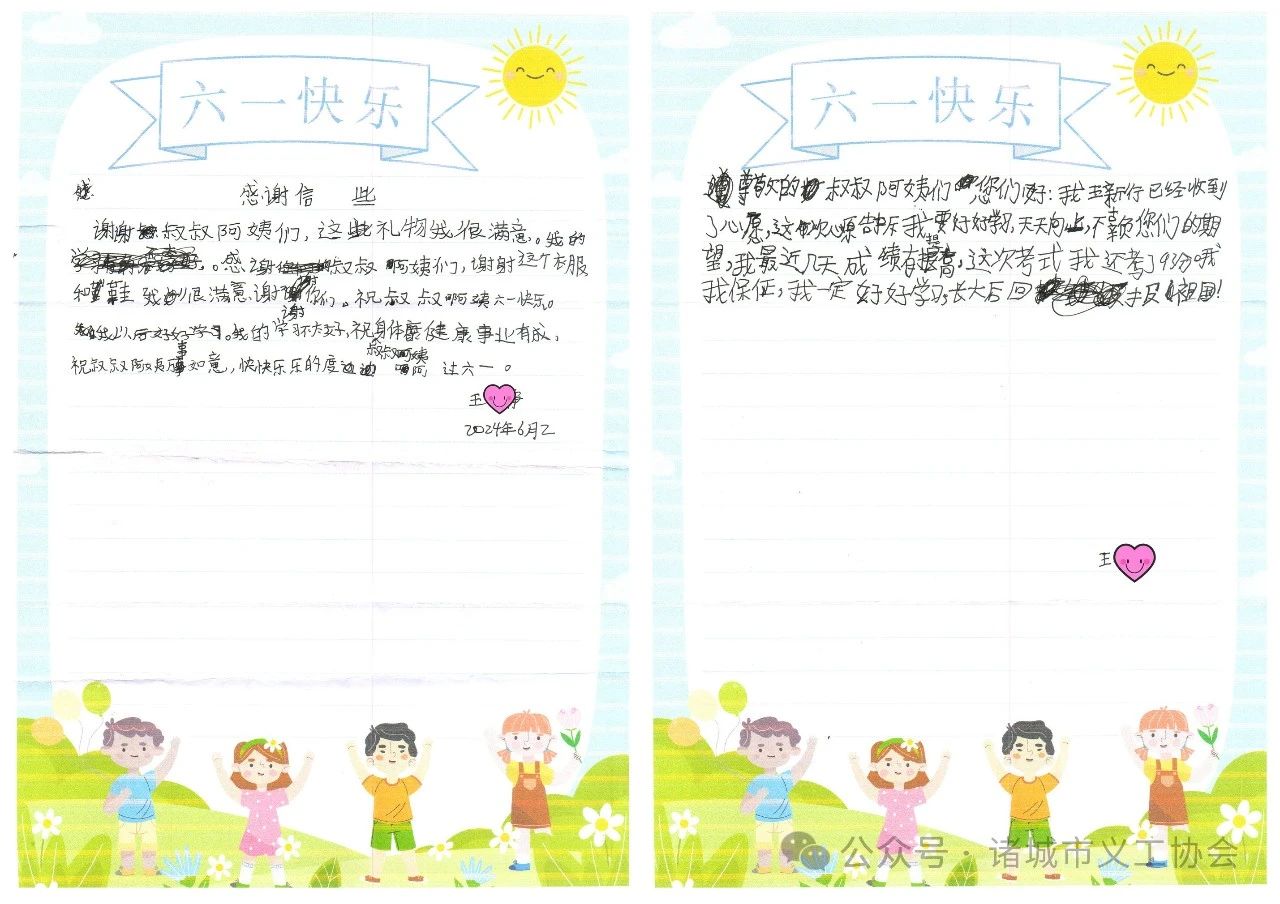 六一快乐
感谢信 些
谢谢叔叔阿姨们,这些礼物我很满意。我的
感谢叔叔啊姨们,谢谢这个衣服
和鞋 我很满意,谢谢你们。祝叔叔啊姨六一快乐。
我以后好好学习。我的学习不太好,祝身体健康事业有成,
祝叔叔阿姨事事如意,快快乐乐的度过 叔叔啊姨 过六一。
王
2024年6月2
六一快乐
尊敬的叔叔阿姨们 您们好:我王新行已经收到
了心愿,这次心愿告诉我要好好学习,天天向上,不辜负您们的期
望,我最近几天成绩有提高,这次考式我还考了93分哦
我保证,我一定好好学习,长大后回报祖国!
王
公众号·诸城市义工协会